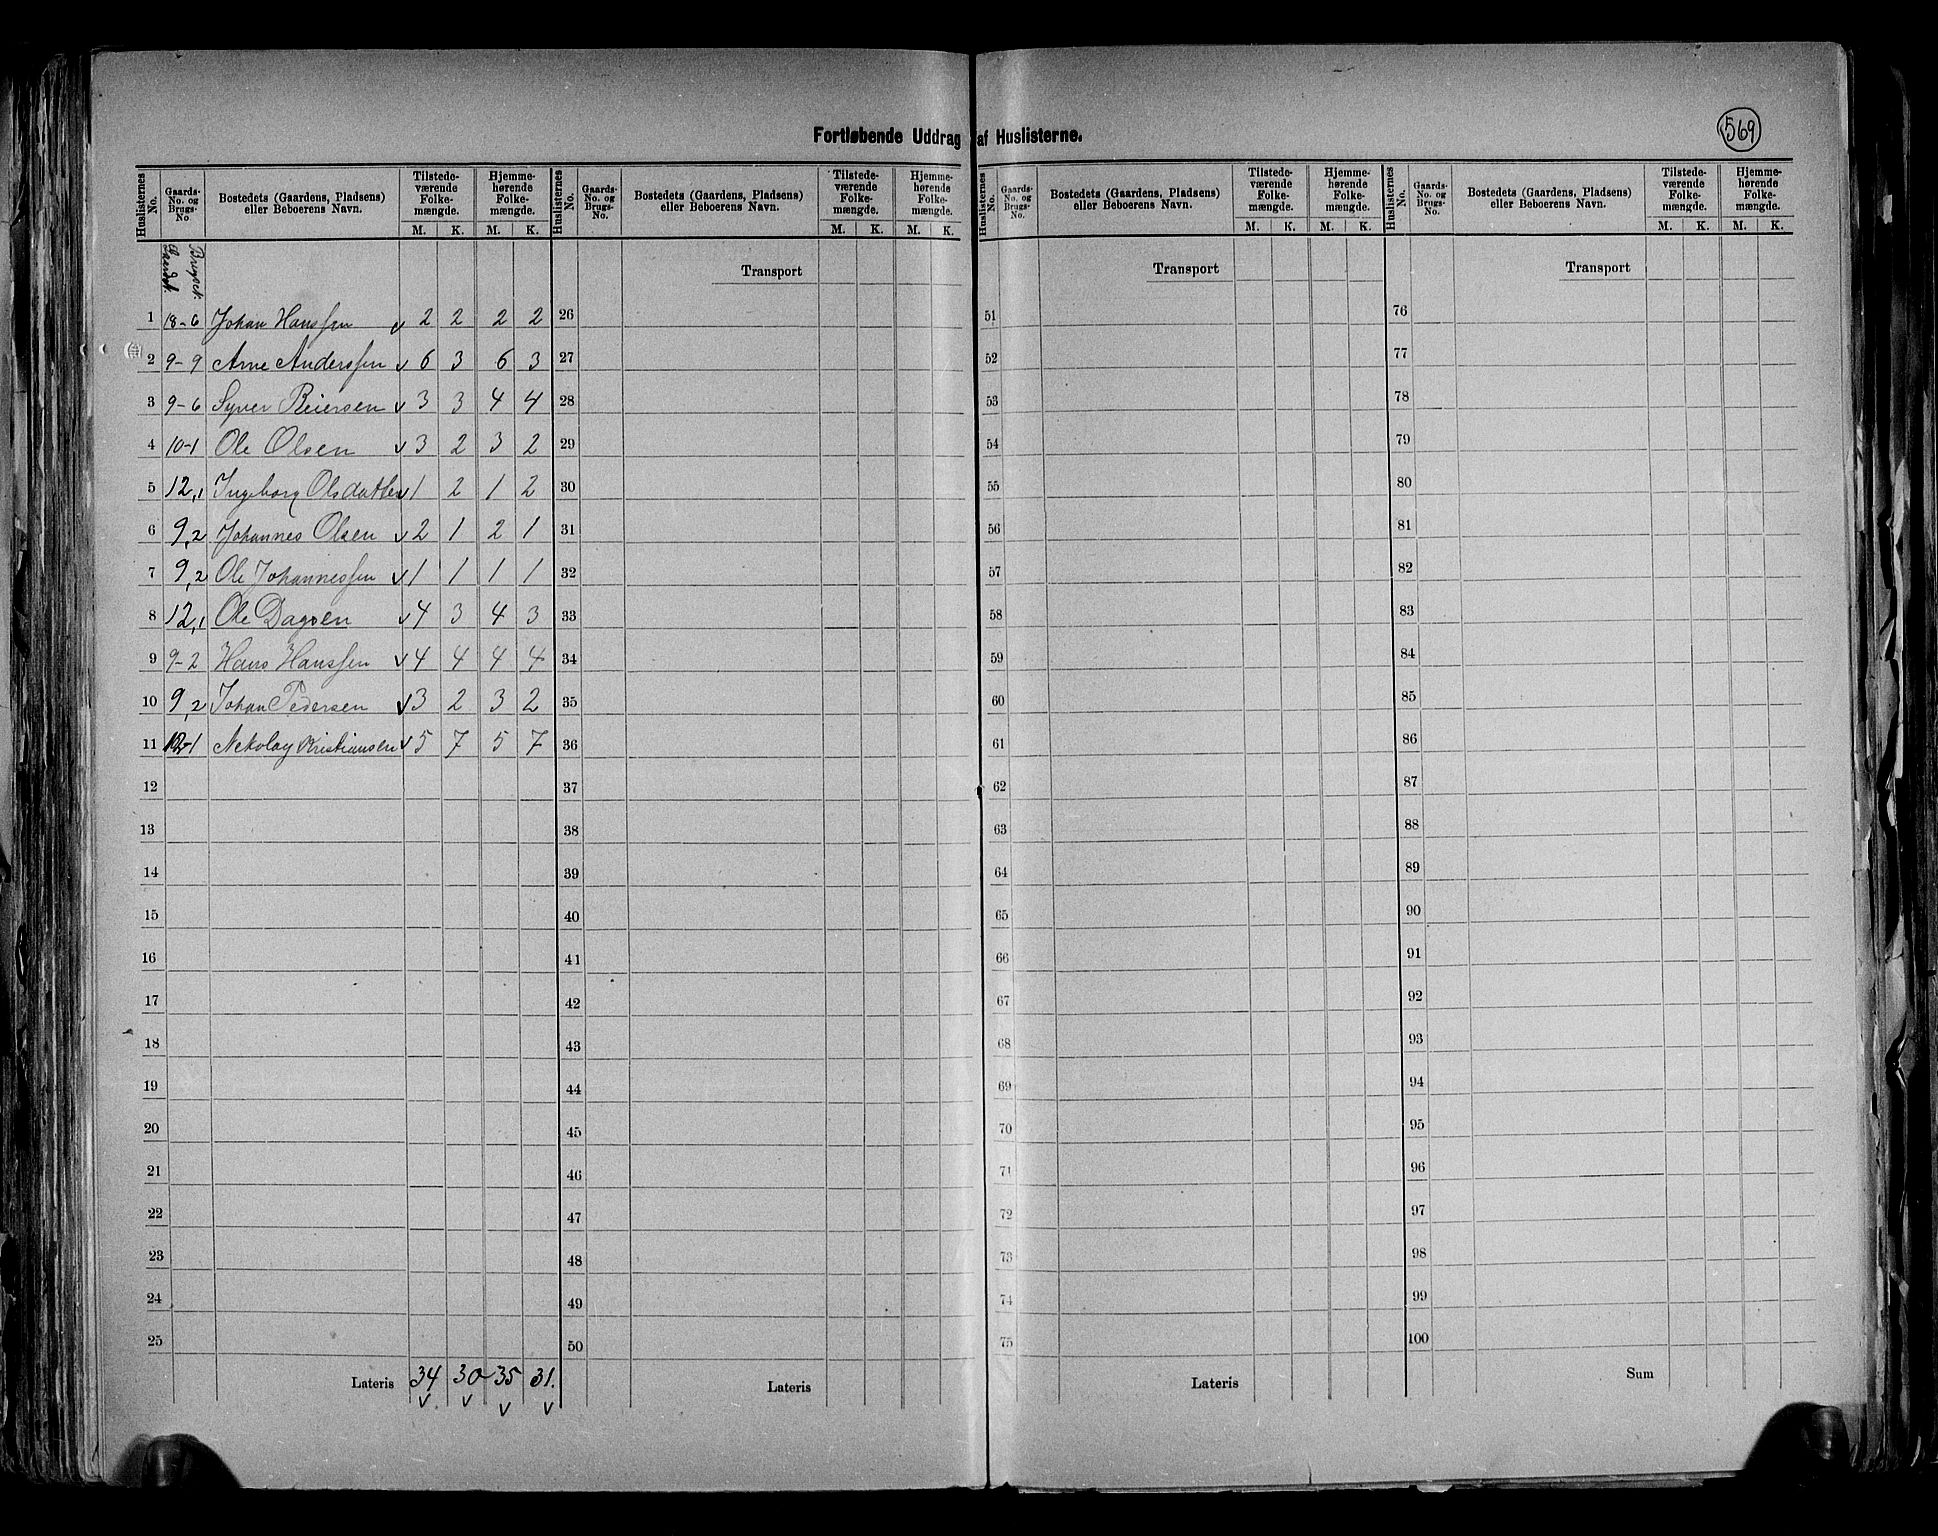 Fortløbende Uddrag af Huslisterne.
569
Huslisternes No. Gaards-No. og Brugs-No Bostedets (Gaardens, Pladsens) eller Beboerens Navn. Tilstedeværende Folkemængde. Hjemmehørende Folkemængde. Huslisternes No. Gaards-No. og Brugs-No. Bostedets (Gaardens, Pladsens) eller Beboerens Navn. Tilstedeværende Folkemængde. Hjemmehørende Folkemængde. Huslisternes No. Gaards-No. og Brugs-No. Bostedets (Gaardens, Pladsens) eller Beboerens Navn. Tilstedeværende Folkemængde. Hjemmehørende Folkemængde. Huslisternes No. Gaards-No. og Brugs-No. Bostedets (Gaardens, Pladsens) eller Beboerens Navn. Tilstedeværende Folkemængde. Hjemmehørende Folkemængde.
M. K. M. K. M. K. M. K. M. K. M. K. M. K. M. K.
Transport Transport Transport
1 18-6 Johan Hanssen v 2 2 2 2 26 51 76
2 9-9 Arne Anderssen v 6 3 6 3 27 52 77
3 9-6 Syver Reiersen v 3 3 4 4 28 53 78
4 10-1 Ole Olsen v 3 2 3 2 29 54 79
5 12,1 Ingeborg Olsdatter v 1 2 1 2 30 55 80
6 9,2 Johannes Olsen v 2 1 2 1 31 56 81
7 9,2 Ole Johannessen v 1 1 1 1 32 57 82
8 12,1 Ole Dagsen v 4 3 4 3 33 58 83
9 9-2 Hans Hanssen v 4 4 4 4 34 59 84
10 9,2 Johan Pedersen v 3 2 3 2 35 60 85
11 12-1 Nekolay Kristiansen v 5 7 5 7 36 61 86
12 37 62 87
13 38 63 88
14 39 64 89
15 40 65 90
16 41 66 91
17 42 67 92
18 43 68 93
19 44 69 94
20 45 70 95
21 46 71 96
22 47 72 97
23 48 73 98
24 49 74 99
25 50 75 100
Lateris 34 30 35 31. Lateris Lateris Sum
v v v v